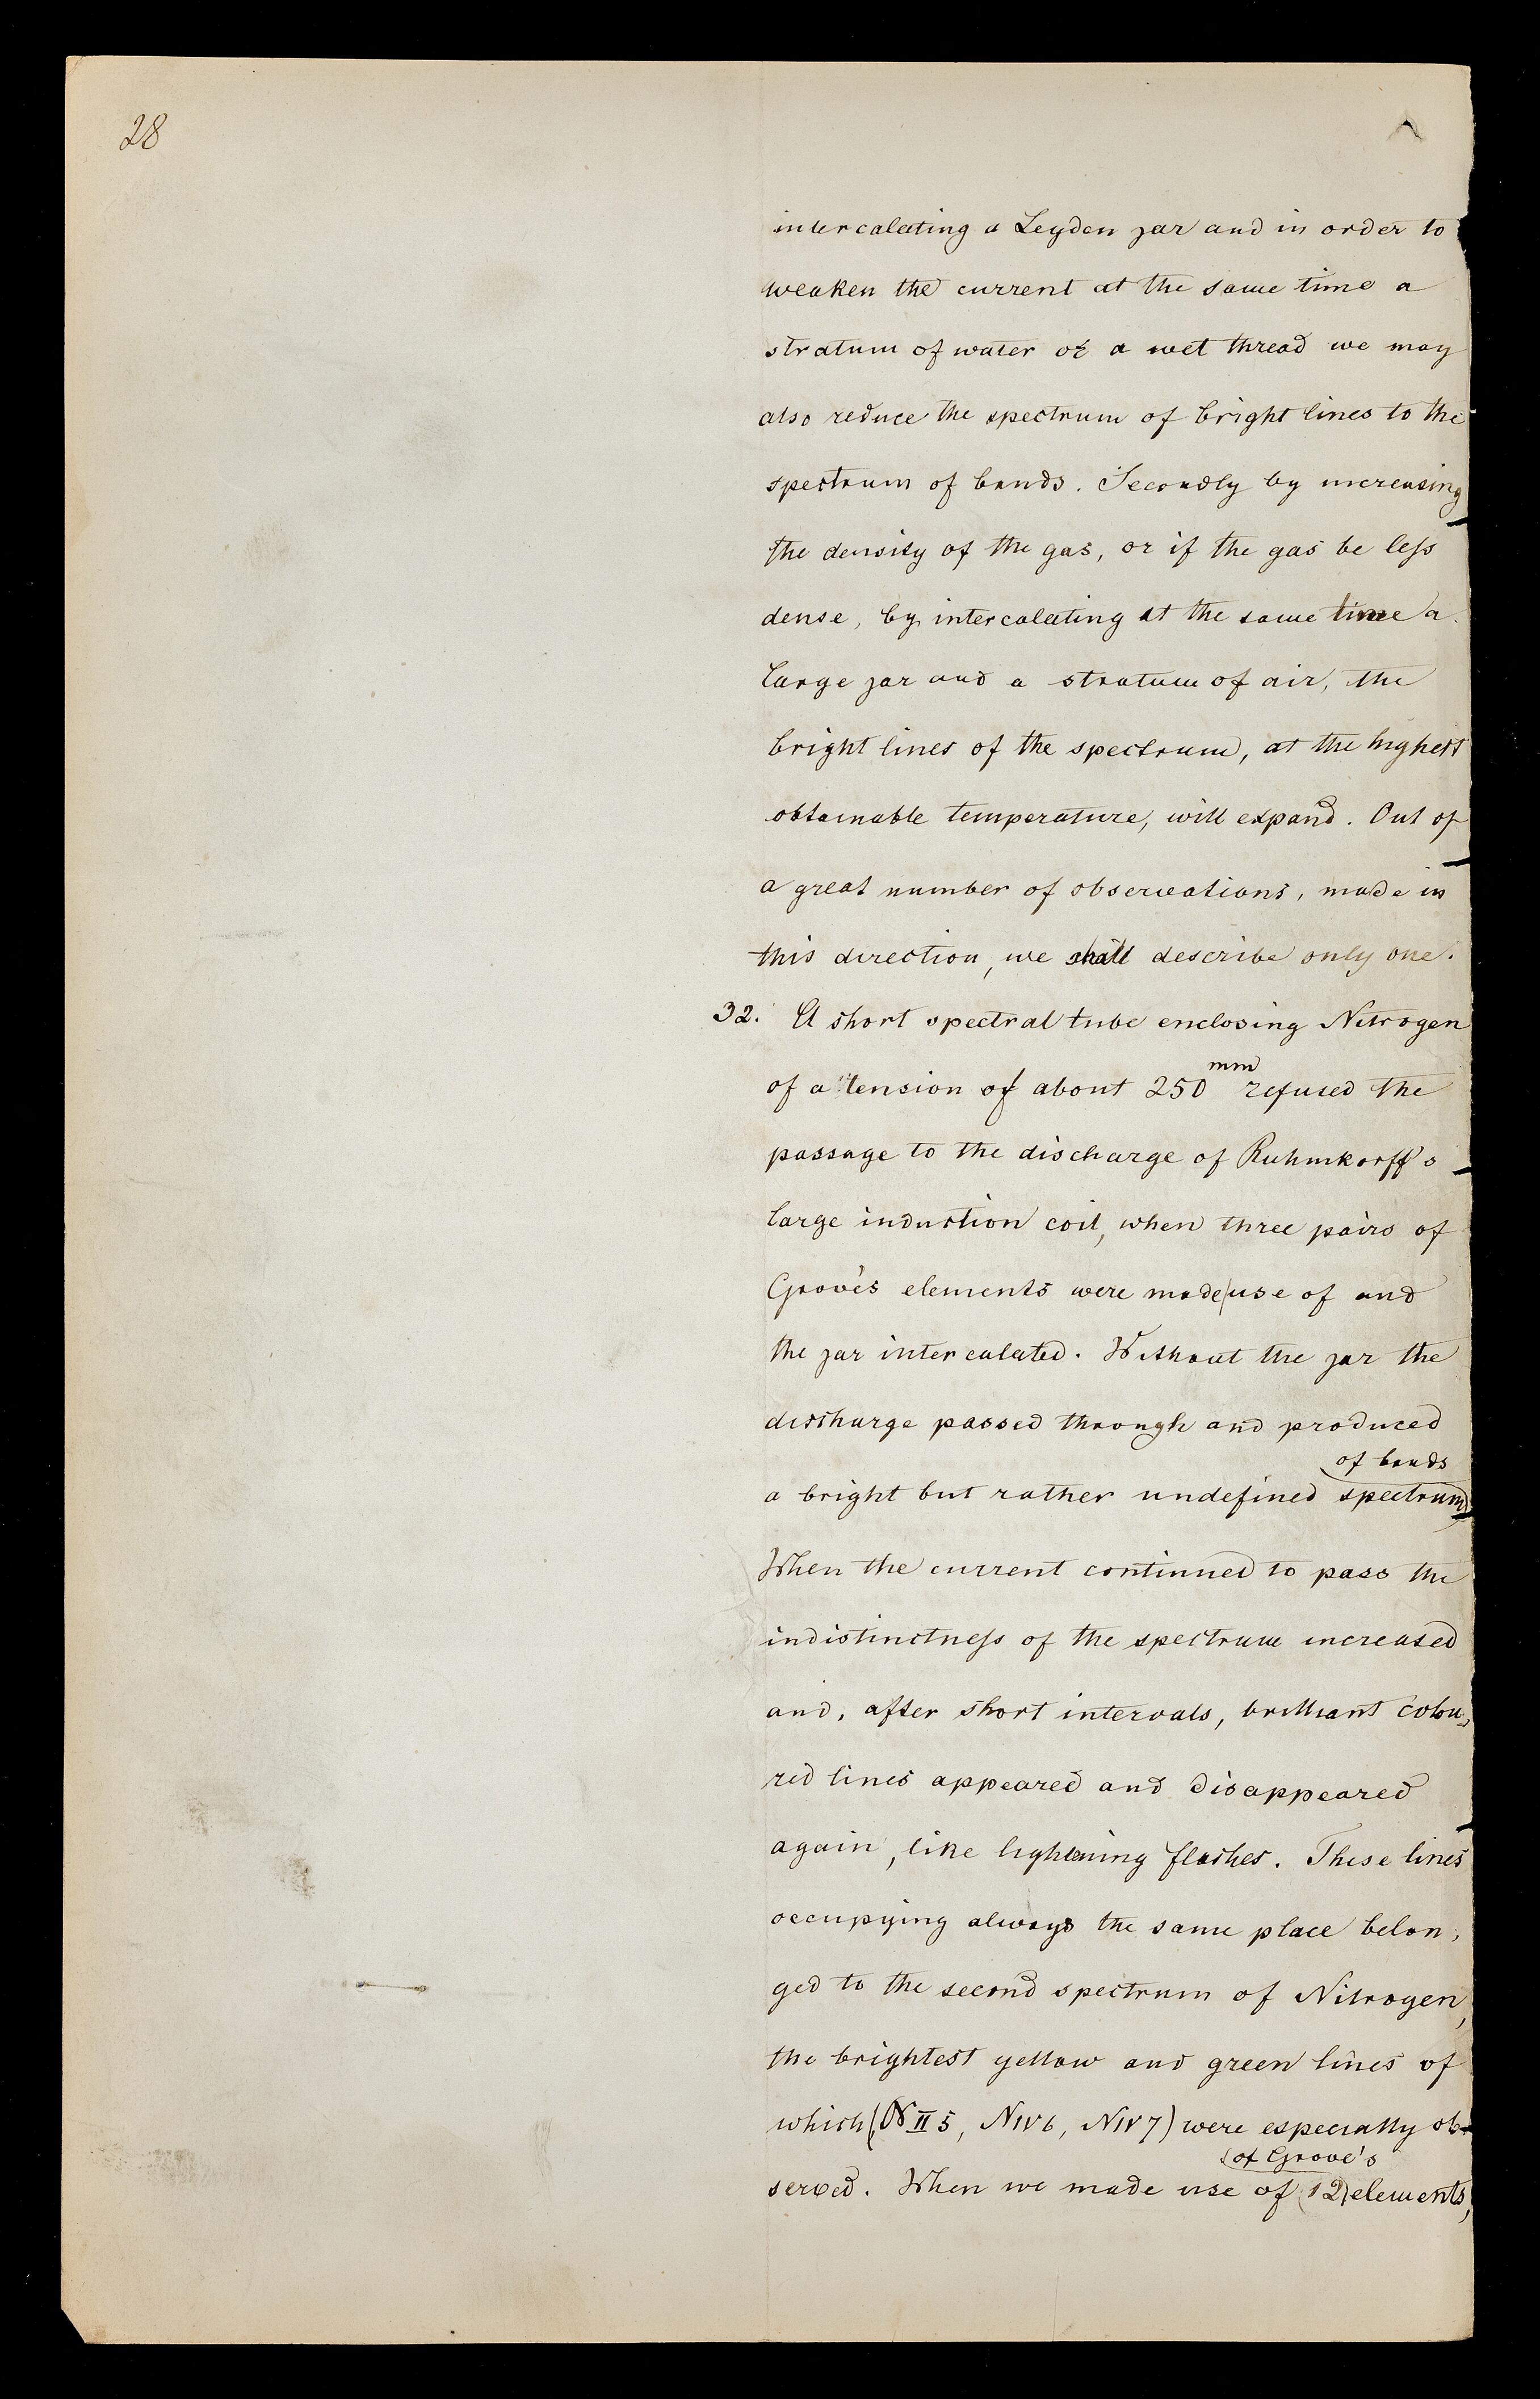 28
intercalating a Leyden jar and in order to
weaken the current at the same time a
stratum of water or a wet thread we may
also reduce the spectrum of bright lines to the
spectrum of bands. Secondly by increasing
the density of the gas, or if the gas be less
dense, by intercalating at the same time a
large jar and a stratum of air, the
bright lines of the spectrum, at the highest
obtainable temperature, will expand. Out of
a great number of observations, made in
this direction, we shall describe only one.
32. A short spectral tube enclosing Nitrogen
of a tension of about 250 mm refused the
passage to the discharge of Ruhmkorff's
large induction coil, when three pairs of
Grove's elements were made use of and
the jar intercalated. Without the jar the
discharge passed through and produced
of bands
a bright but rather undefined spectrum.
When the current continued to pass the
indistinctness of the spectrum increased
and, after short intervals, brilliant colou-
red lines appeared and disappeared
again, like lightening flashes. These lines
occupying always the same place belon-
ged to the second spectrum of Nitrogen,
the brightest yellow and green lines of
which (N II 5, N IV 6, N IV 7) were especially ob-
of Grove's
served. When we made use of 12 elements,